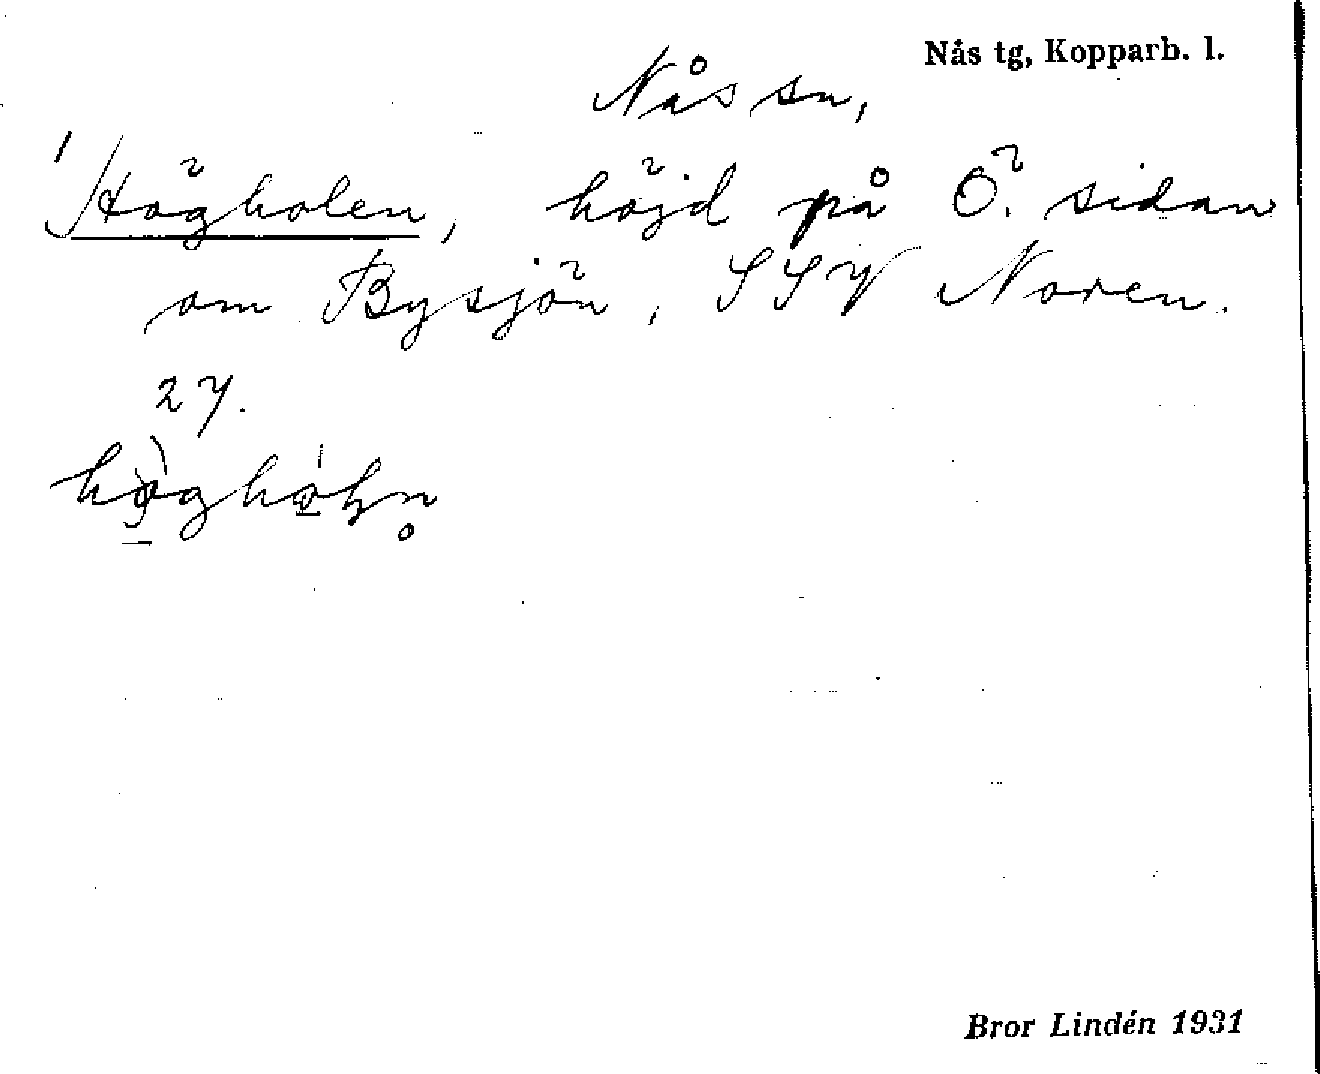 Nås tg, Kopparb. l.
Nås sn,
Högholen, höjd på Ö. sidan
om Bysjön, SSV Noren.
27.
Bror Lindén 1931